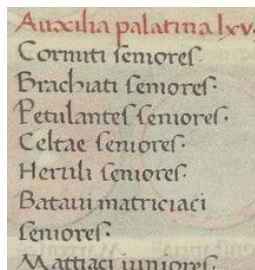 Auxilia palatina lxv
Cornuti seniores.
Brachiati seniores.
Petulantes seniores.
Celtae seniores.
Heruli seniores.
Bataui matriciaci
seniores.
Mattiaci iuniores.